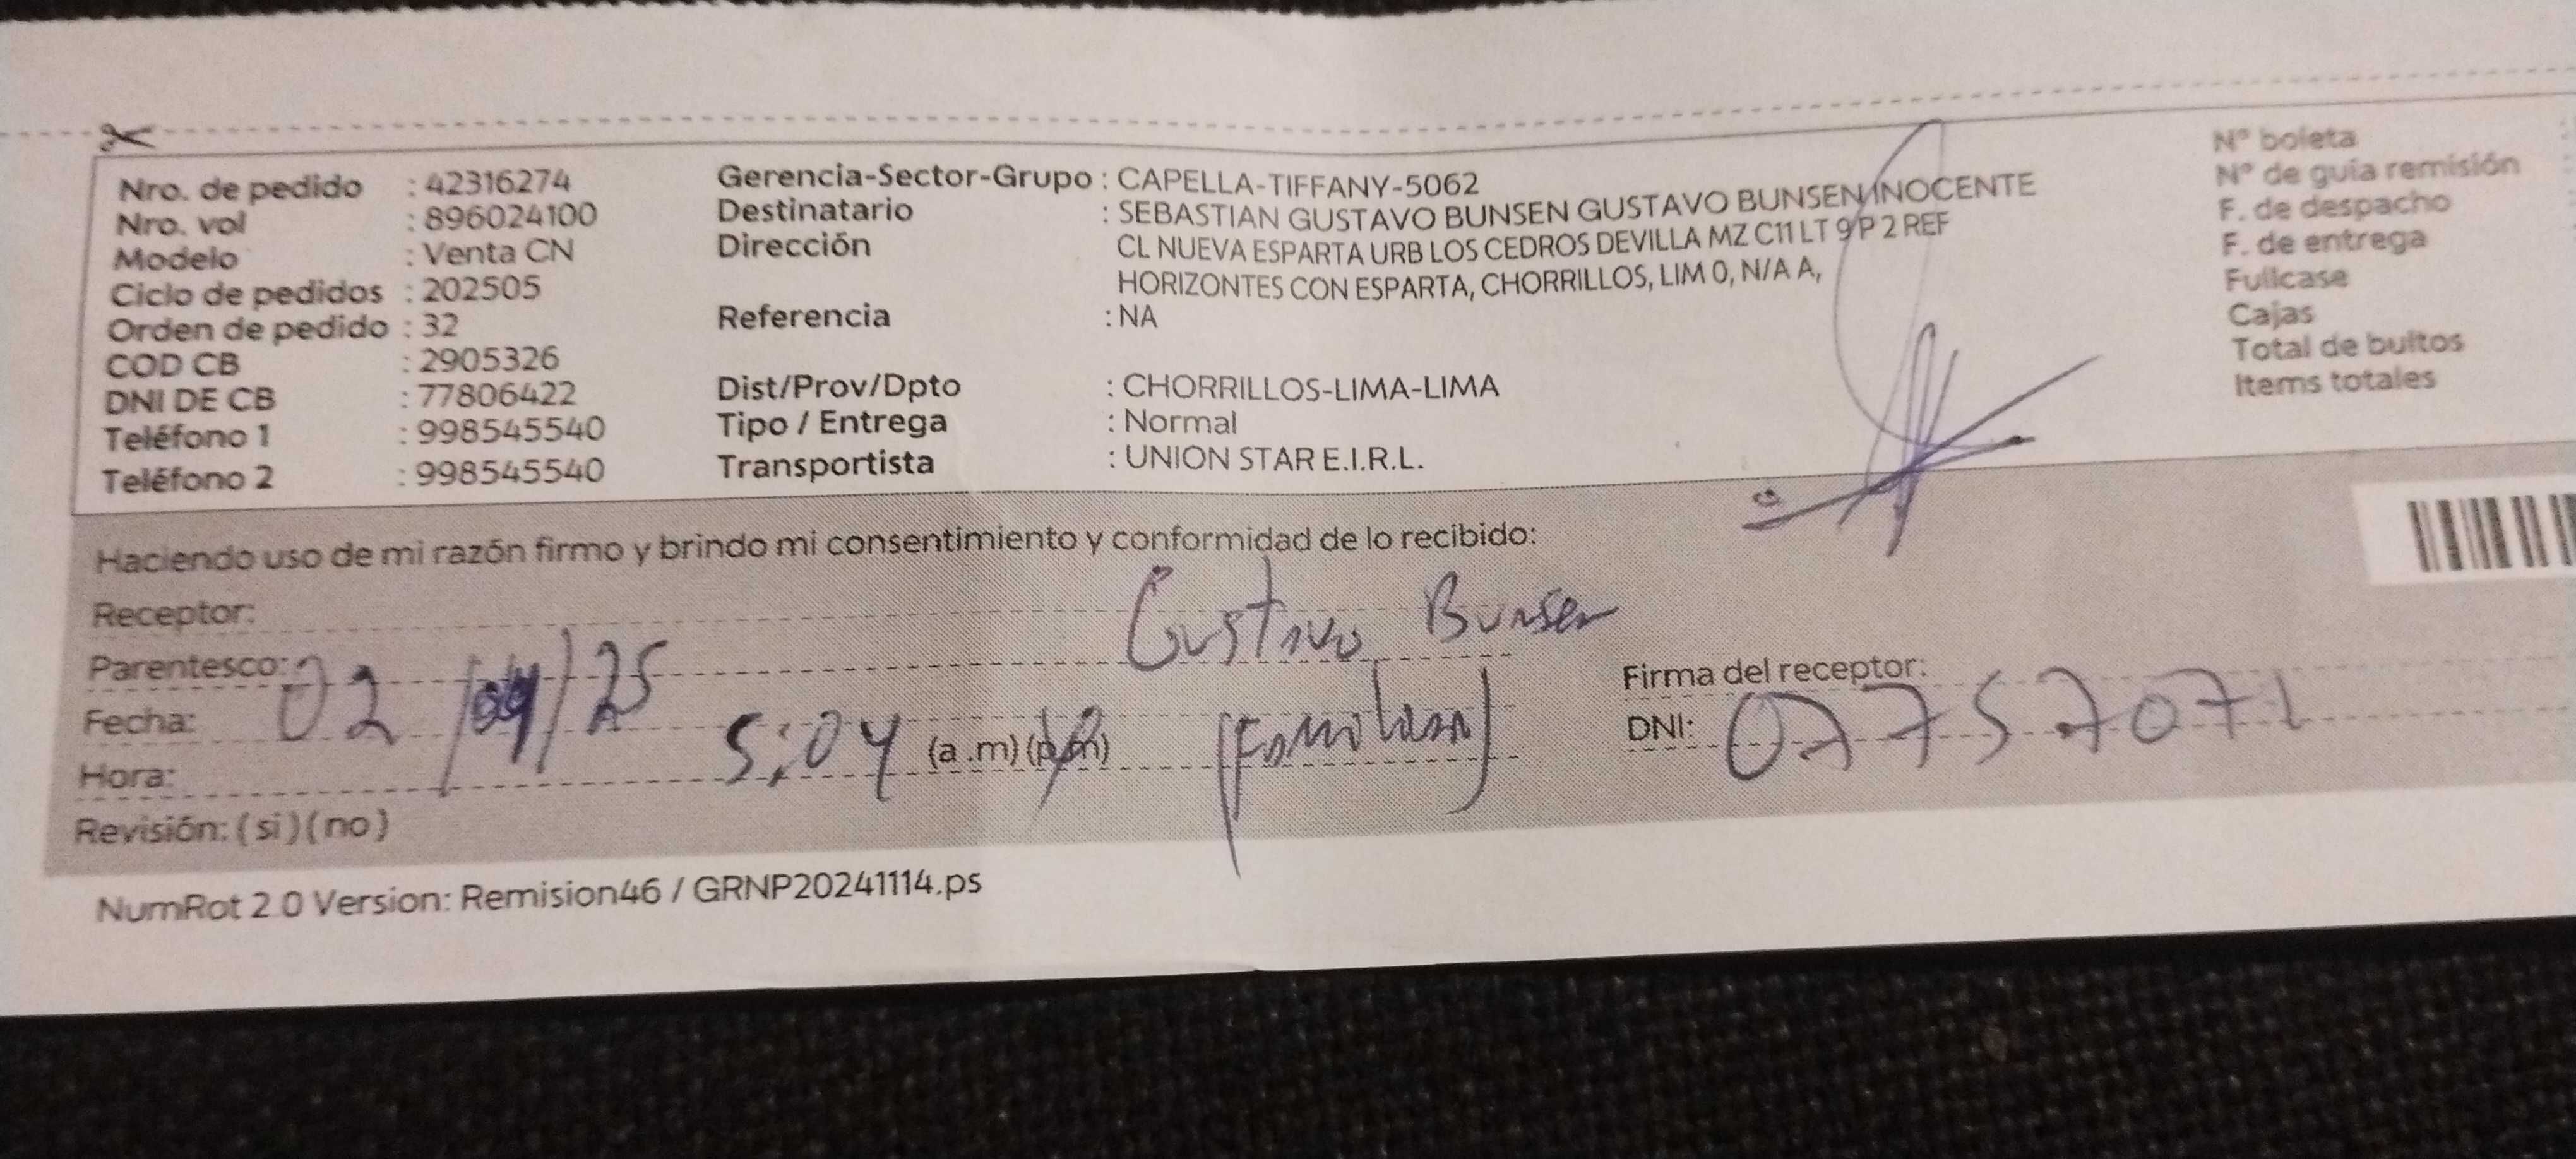 Nro. de pedido : 42316274
Nro. vol : 896024100
Modelo : Venta CN
Ciclo de pedidos : 202505
Orden de pedido : 32
COD CB : 2905326
DNI DE CB : 77806422
Teléfono 1 : 998545540
Teléfono 2 : 998545540
Gerencia-Sector-Grupo : CAPELLA-TIFFANY-5062
Destinatario : SEBASTIAN GUSTAVO BUNSEN GUSTAVO BUNSEN INOCENTE
Dirección CL NUEVA ESPARTA URB LOS CEDROS DEVILLA MZ C11 LT 9 P 2 REF
HORIZONTES CON ESPARTA, CHORRILLOS, LIM 0, N/A A,
Referencia : NA
Dist/Prov/Dpto : CHORRILLOS-LIMA-LIMA
Tipo / Entrega : Normal
Transportista : UNION STAR E.I.R.L.
Nº boleta
Nº de guia remisión
F. de despacho
F. de entrega
Fullcase
Cajas
Total de bultos
Items totales
Haciendo uso de mi razón firmo y brindo mi consentimiento y conformidad de lo recibido:
Receptor: Gustavo Bunsen
Parentesco:
Fecha: 02/04/25
Hora: 5:04 (a .m) (p.m)
Revisión: ( si ) ( no )
Firma del receptor:
DNI: 07757071
NumRot 2.0 Version: Remision46 / GRNP20241114.ps